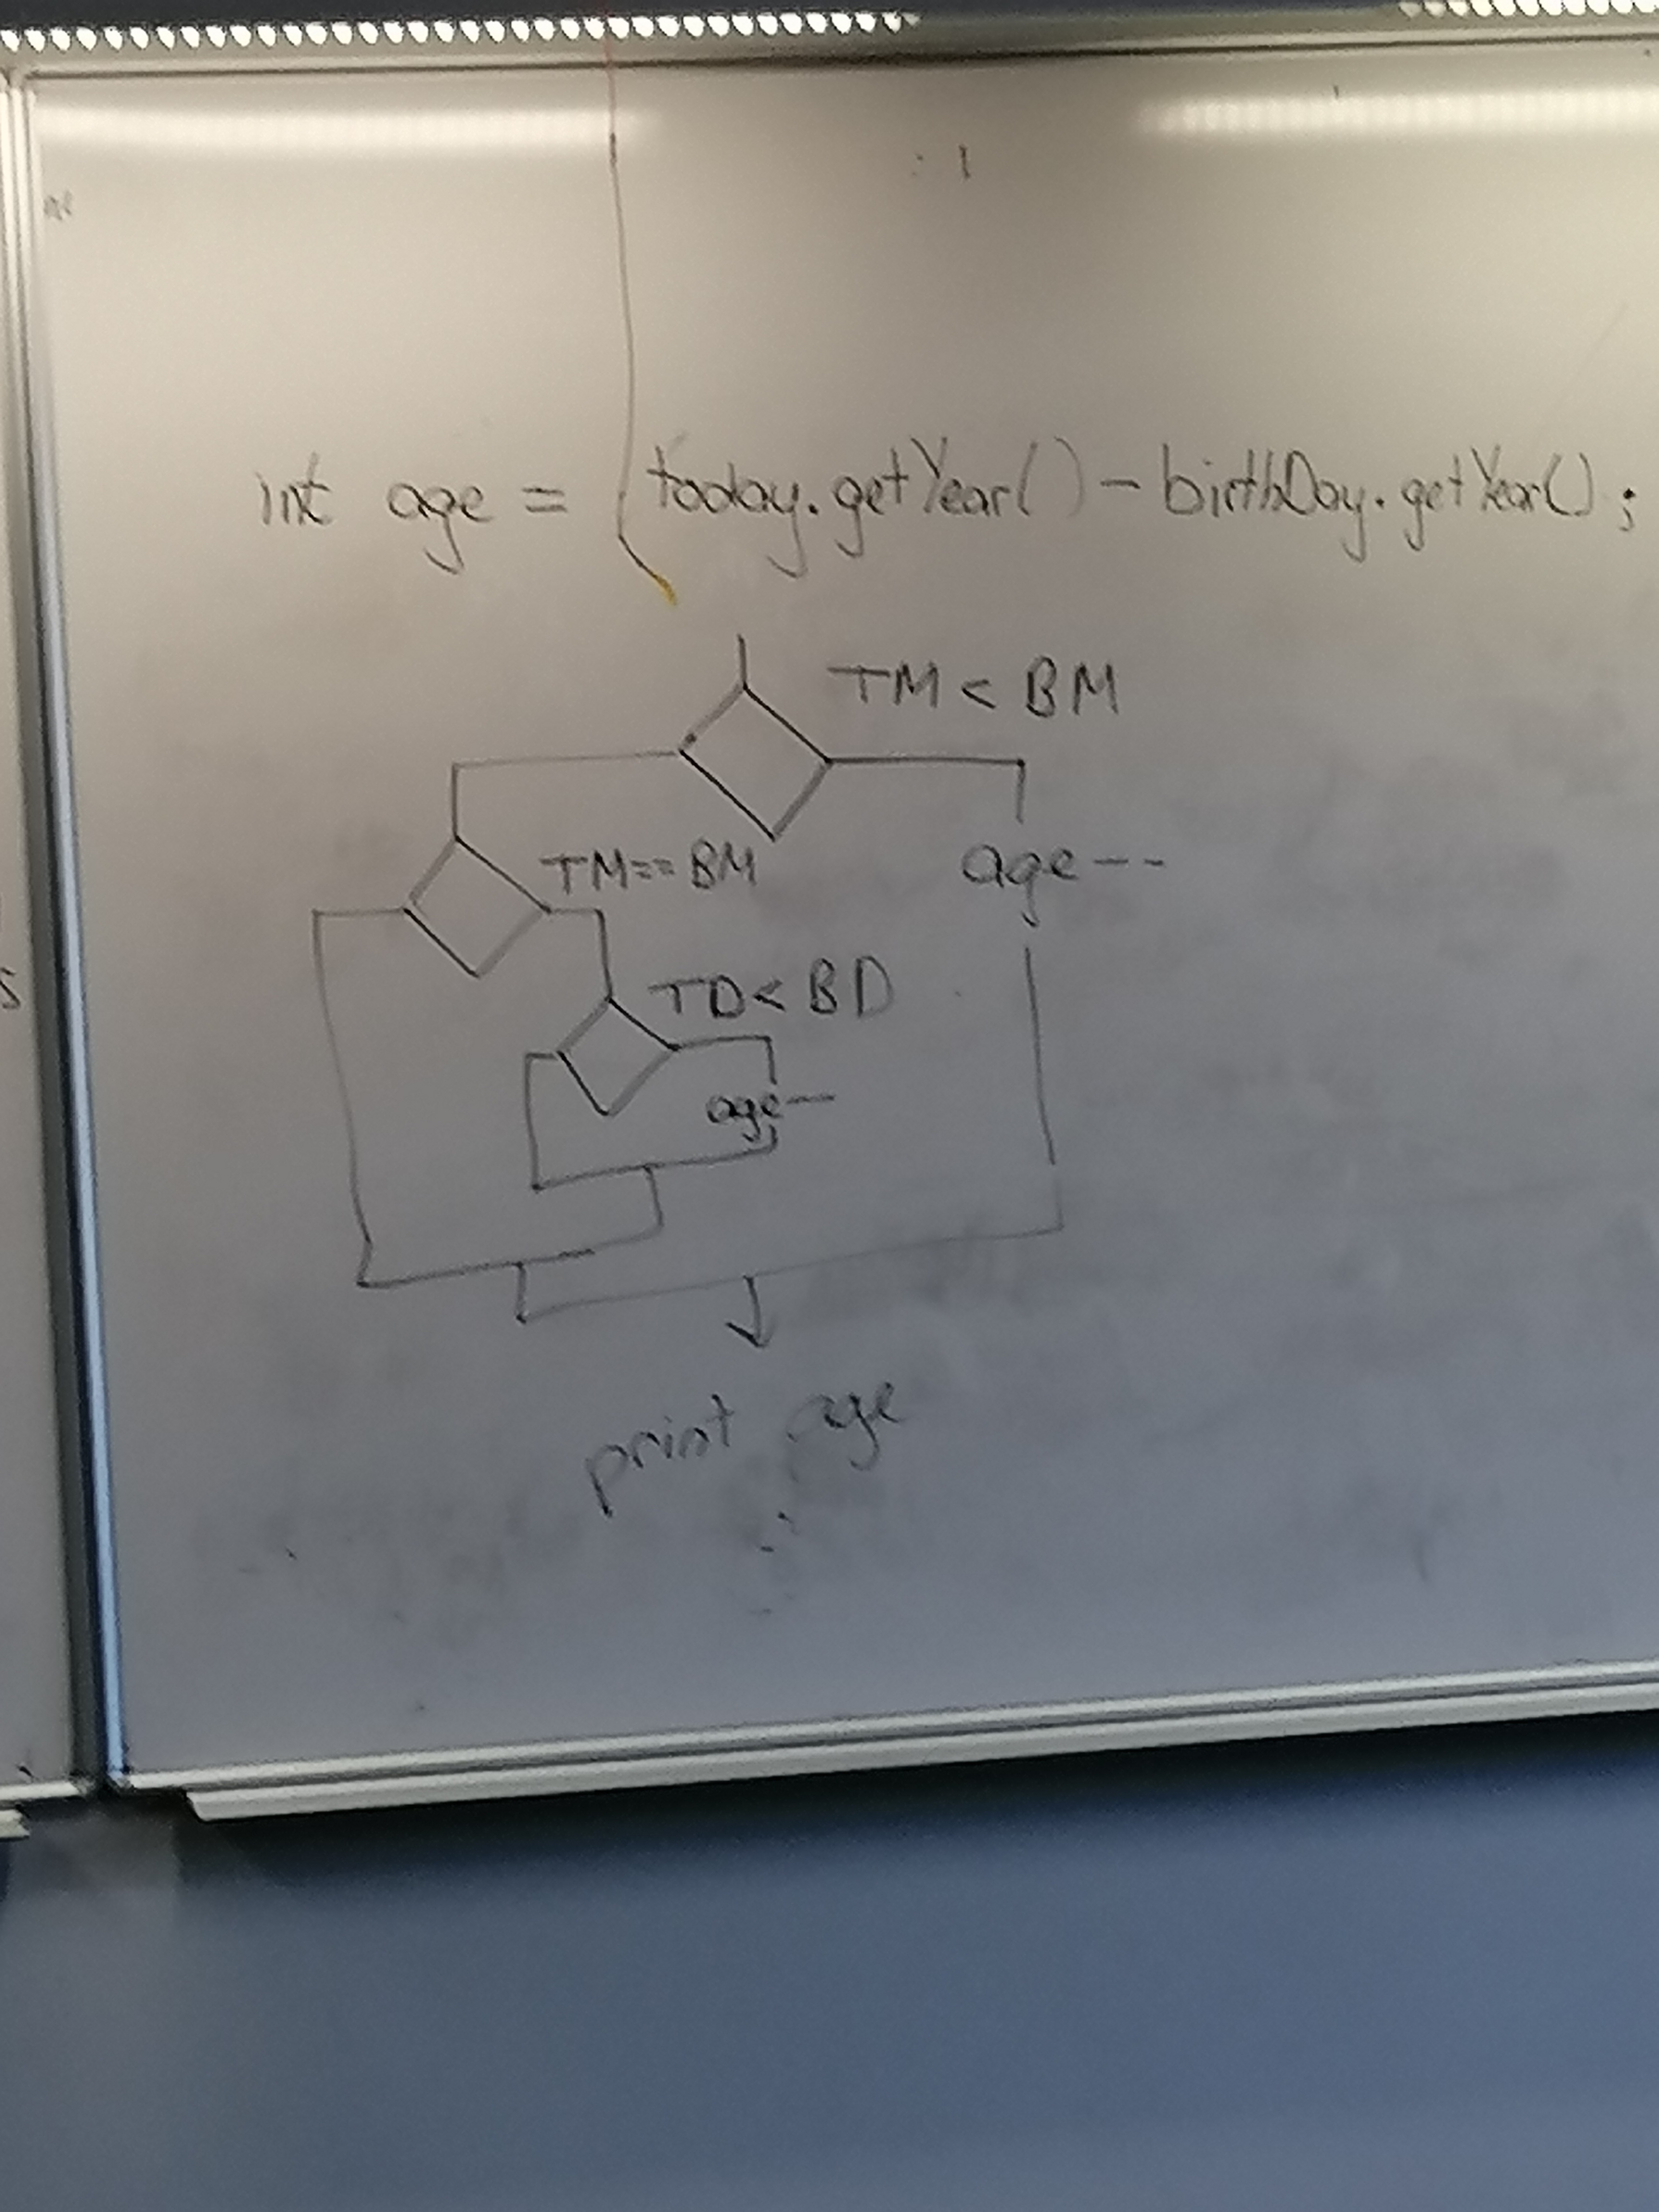 int age = today.getYear() - birthDay.getYear();
TM < BM
TM == BM
age--
TD < BD
age--
print age